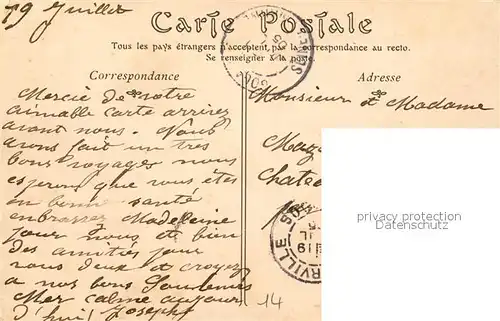 19 Juillet
Carte Postale
Tous les pays étrangers n'acceptent pas la correspondance au recto.
Se renseigner à la poste.
Correspondance
Adresse
Mercie de votre
aimable carte arrivez
avant nous. Nous
avons fait un tres
bons voyages nous
esperons que vous êtes
en bonne santé
enbrassez Madeleine
pour nous et bien
des amitiés pour
vous deux et croyez
a nos bons Souvenirs
Mer calme aujour
d'hui Joseph
Monsieur et Madame
privacy protection
Datenschutz
14